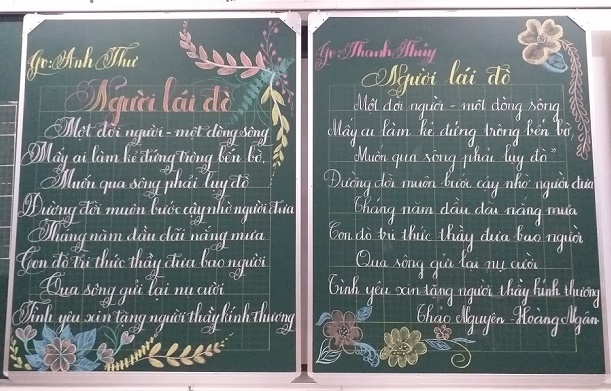 Gv: Anh Thư
Người lái đò
Một đời người - một dòng sông
Mấy ai làm kẻ đứng trông bến bờ,
Muốn qua sông phải lụy đò
Đường đời muôn bước cậy nhờ người đưa
Tháng năm dầu dãi nắng mưa
Con đò trí thức thầy đưa bao người
Qua sông gửi lại nụ cười
Tình yêu xin tặng người thầy kính thương
Gv: Thanh Thúy
Người lái đò
Một đời người - một dòng sông
Mấy ai làm kẻ đứng trông bến bờ,
Muốn qua sông phải lụy đò"
Đường đời muôn bước cậy nhờ người đưa
Tháng năm dầu dãi nắng mưa
Con đò trí thức thầy đưa bao người
Qua sông gửi lại nụ cười
Tình yêu xin tặng người thầy kính thương
Thảo Nguyên - Hoàng Ngân